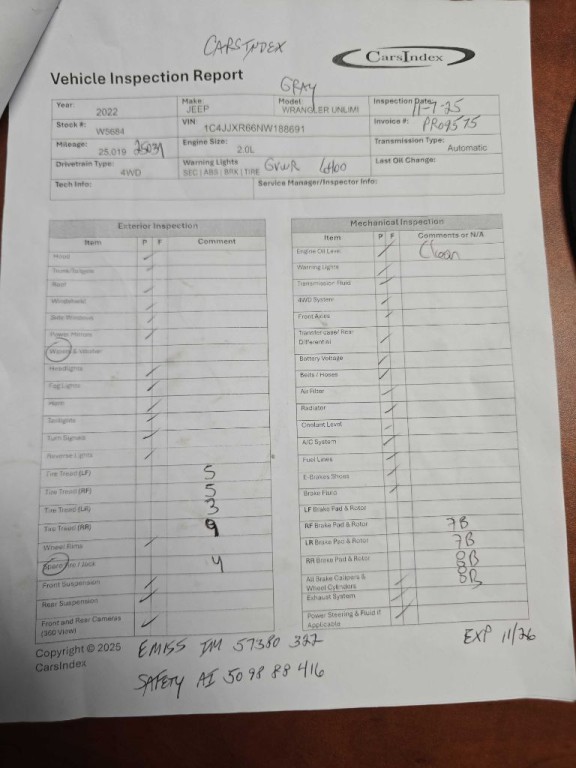 CARSINDEX
CarsIndex
Vehicle Inspection Report
GRAY
Year: 2022 Make: JEEP Model: WRANGLER UNLIMI Inspection Date: 11-7-25
Stock #: W5684 VIN: 1C4JJXR66NW188691 Invoice #:
Mileage: 25,019 25031 Engine Size: 2.0L Transmission Type: Automatic
Drivetrain Type: 4WD Warning Lights SEC | ABS | BRK | TIRE GVWR Last Oil Change:
Tech Info: Service Manager/Inspector Info:
Exterior Inspection
Item P F Comment
Hood
Trunk/Tailgate
Roof
Windshield
Side Windows
Power Mirrors
Wipers & Washer
Headlights
Fog Lights
Horn
Taillights
Turn Signals
Reverse Lights
Tire Tread (LF) 5
Tire Tread (RF) 5
Tire Tread (LR) 3
Tire Tread (RR)
Wheel Rims
Spare Tire / Jack 4
Front Suspension
Rear Suspension
Front and Rear Cameras
(360 View)
Mechanical Inspection
Item P F Comments or N/A
Engine Oil Level Clean
Warning Lights
Transmission Fluid
4WD System
Front Axles
Transfer case/ Rear
Differential
Battery Voltage
Belts / Hoses
Air Filter
Radiator
Coolant Level
A/C System
Fuel Lines
E-Brakes Shoes
Brake Fluid
LF Brake Pad & Rotor
RF Brake Pad & Rotor 7B
LR Brake Pad & Rotor 7B
RR Brake Pad & Rotor 8B
All Brake Calipers & 8B
Wheel Cylinders
Exhaust System
Power Steering & Fluid if
Applicable
Copyright © 2025
CarsIndex
EMISS IM 57380 322
SAFETY AI 5098 88 416
EXP 11/26